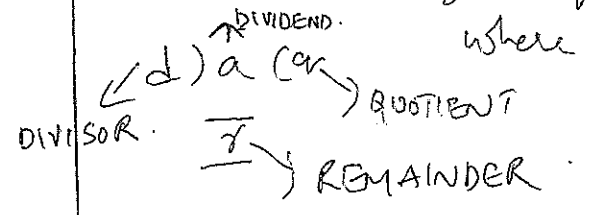 DIVIDEND.
where
d) a (q
QUOTIENT
DIVISOR.
r
REMAINDER.